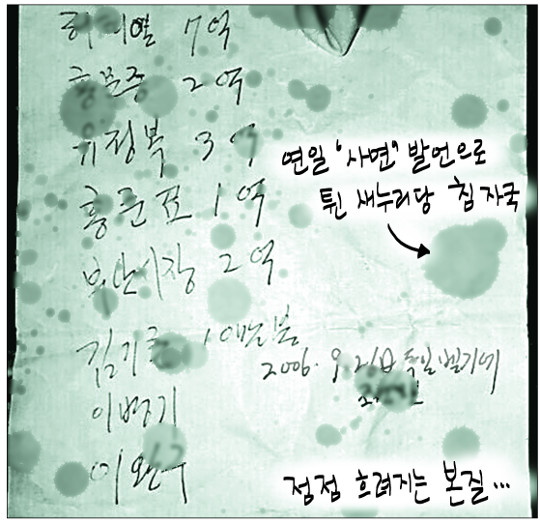 허태열 7억
홍문종 2억
유정복 3억
홍준표 1억
부산시장 2억
연일 '사면' 발언으로
튄 새누리당 침 자국
김기춘 10만불
2006. 9. 26日 독일 벨기에
이병기
이완구
점점 흐려지는 본질...